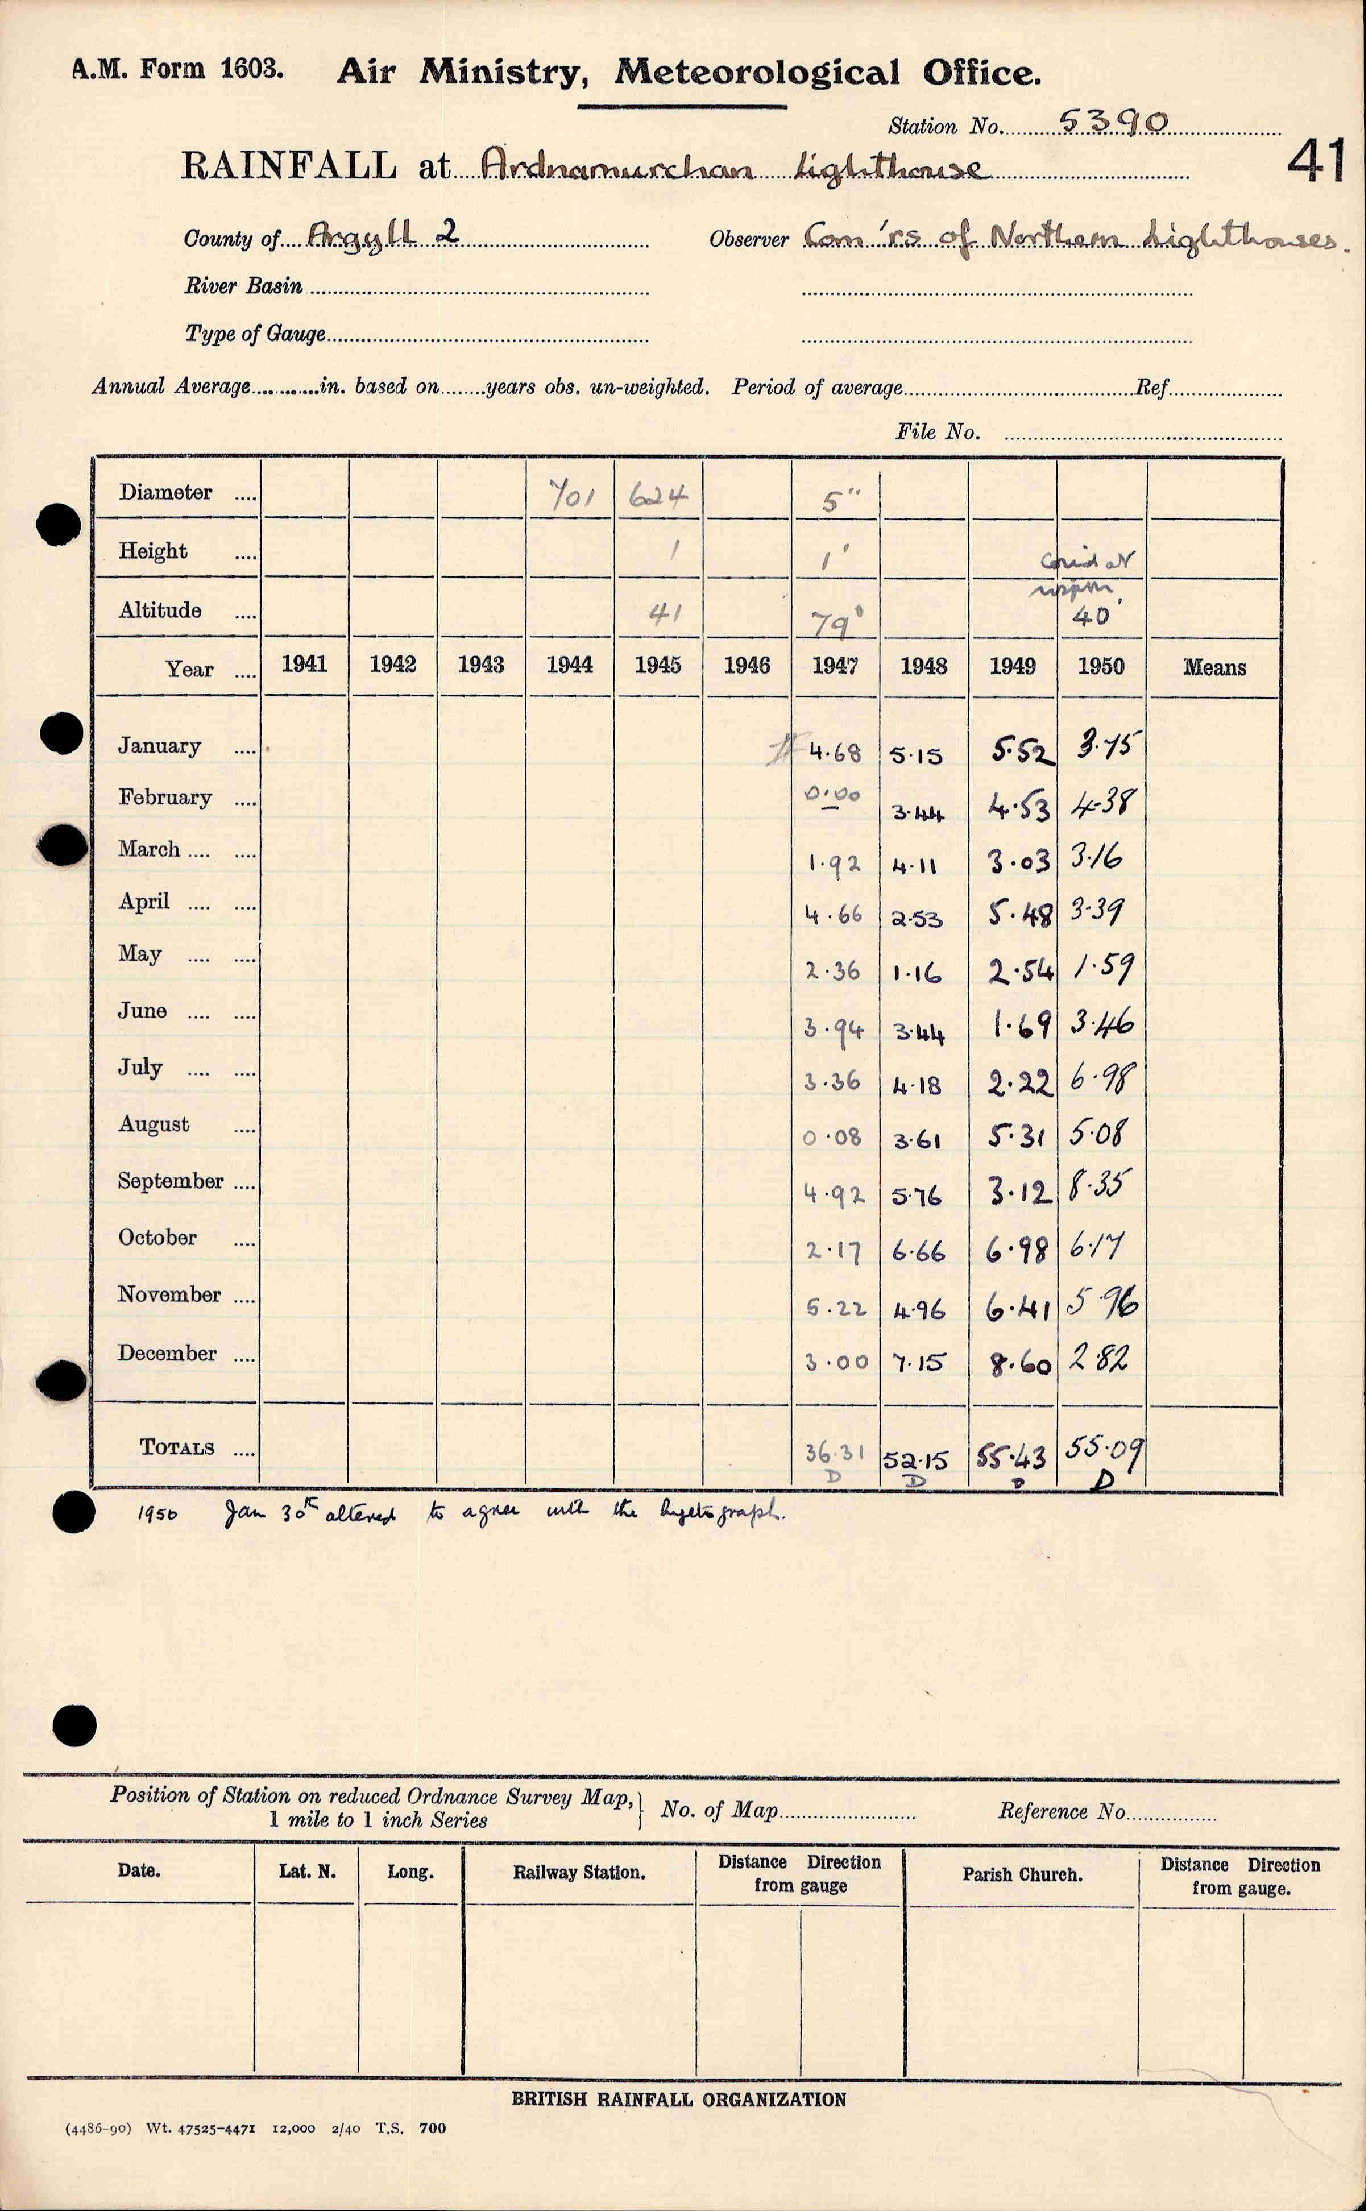 A.M. Form 1603. Air Ministry, Meteorological Office.
Station No. 5390
41
RAINFALL at Ardnamurchan Lighthouse
County of Argyll 2 Observer Com'rs of Northern Lighthouses.
River Basin
Type of Gauge
Annual Average in. based on years obs. un-weighted. Period of average Ref.
File No.
Diameter 701 624 5"
Height 1 1'
Altitude 41 79' 40'
Year 1941 1942 1943 1944 1945 1946 1947 1948 1949 1950 Means
January 4.68 5.15 5.52 3.75
February 0.00 3.44 4.53 4.38
March 1.92 4.11 3.03 3.16
April 4.66 2.53 5.48 3.39
May 2.36 1.16 2.54 1.59
June 3.94 3.44 1.69 3.46
July 3.36 4.18 2.22 6.98
August 0.08 3.61 5.31 5.08
September 4.92 5.76 3.12 8.35
October 2.17 6.66 6.98 6.17
November 5.22 4.96 6.41 5.96
December 3.00 7.15 8.60 2.82
TOTALS 36.31 52.15 55.43 55.09
D D D D
1950 Jan 30th altered to agree with the hyetograph.
Position of Station on reduced Ordnance Survey Map, } No. of Map Reference No.
1 mile to 1 inch Series
Date. Lat. N. Long. Railway Station. Distance Direction from gauge Parish Church. Distance Direction from gauge.
BRITISH RAINFALL ORGANIZATION
(4486-90) Wt. 47525-4471 12,000 2/40 T.S. 700